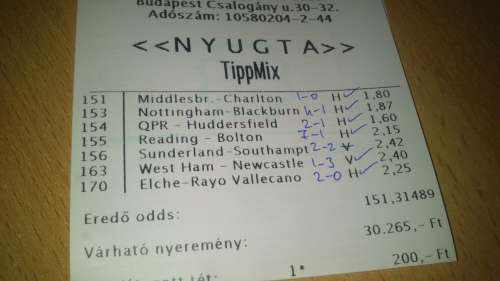 Budapest Csalogány u.30-32.
Adószám: 10580204-2-44
<<NYUGTA>>
TippMix
151 Middlesbr.-Charlton 1-0 H✓ 1,80
153 Nottingham-Blackburn 4-1 H✓ 1,87
154 QPR - Huddersfield 2-1 H✓ 1,60
155 Reading - Bolton 7-1 H✓ 2,15
156 Sunderland-Southampt 2-2 V 2,42
163 West Ham - Newcastle 1-3 V✓ 2,40
170 Elche-Rayo Vallecano 2-0 H✓ 2,25
Eredő odds: 151,31489
Várható nyeremény: 30.265,- Ft
tét: 1* 200,- Ft